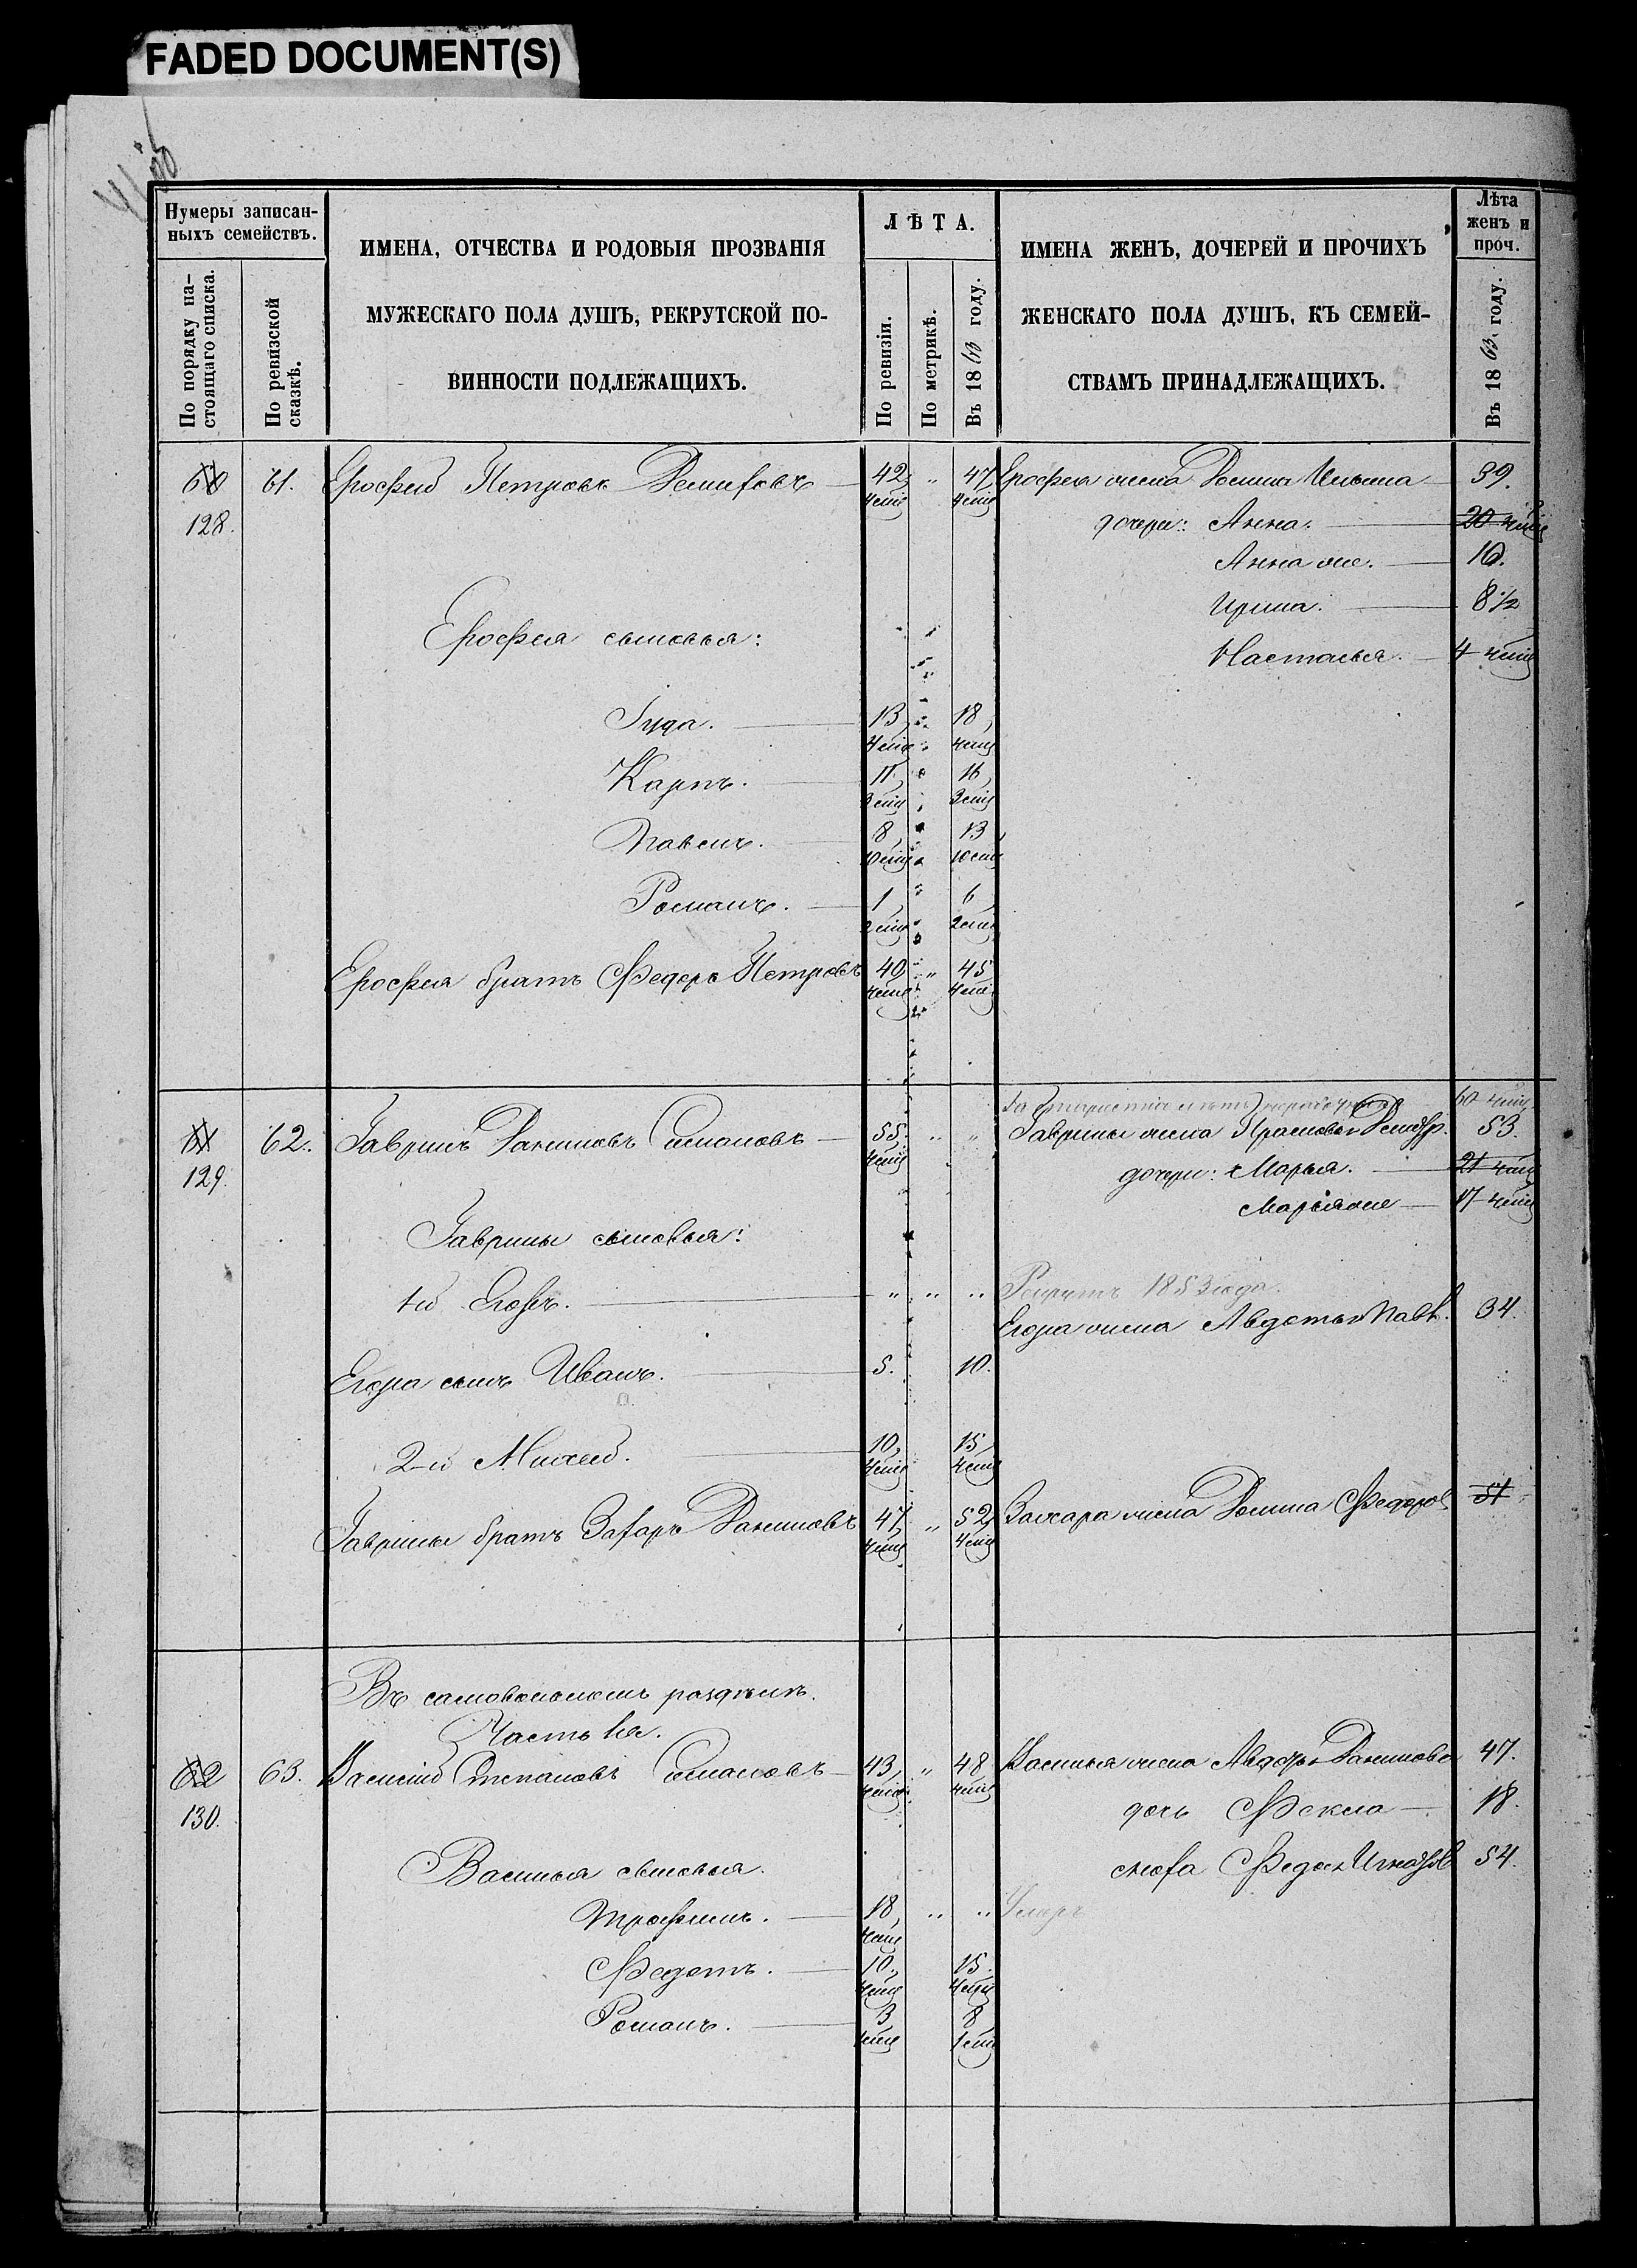 FADED DOCUMENT(S)
Нумеры записан-
ныхъ семействъ.
По порядку на-
стоящаго списка.
По ревизской
сказкѣ.
ИМЕНА, ОТЧЕСТВА И РОДОВЫЯ ПРОЗВАНІЯ
МУЖЕСКАГО ПОЛА ДУШЪ, РЕКРУТСКОЙ ПО-
ВИННОСТИ ПОДЛЕЖАЩИХЪ.
ЛѢТА.
По ревизіи.
По метрикѣ.
Въ 1863 году.
ИМЕНА ЖЕНЪ, ДОЧЕРЕЙ И ПРОЧИХЪ
ЖЕНСКАГО ПОЛА ДУШЪ, КЪ СЕМЕЙ-
СТВАМЪ ПРИНАДЛЕЖАЩИХЪ.
Лѣта
женъ и
проч.
Въ 1863 году.
60 61. Ерофей Петровъ 42, " 47, Ерофея жена Ильина 39.
128.
дочери: Анна. 20
Анна же. 16.
Ирина. 8 1/2
Ерофея сыновья:
Настасья. 4
Іуда. 13, 18,
Карпъ. 11, 16,
Павелъ. 8, 13,
Романъ. 1, 6,
Ерофея братъ Федоръ Петровъ 40, " 45
61 62. Гаврилъ Даниловъ Симановъ 55, " " Гаврилы жена 53.
129.
дочери: Марья. 21
Марья же 17
Гаврилы сыновья:
1й Егоръ. " " " Рекрутъ 1853 года.
Егора жена Авдотья Павл. 34.
Егора сынъ Иванъ. 5. 10.
2-й Михей. 10, 15,
Гаврилы братъ Захаръ Даниловъ 47, " 52, Захара жена Федоров 51
Въ самовольномъ раздѣлѣ.
Часть 1-я.
62 63. Василій Степановъ Симановъ 43, " 48, Василья жена Данилова 47.
130.
дочь Фекла 18.
Василья сыновья. сноха 54.
Трофимъ. 18, " " Умеръ
Федотъ. 10, 15.
Романъ. 3 8